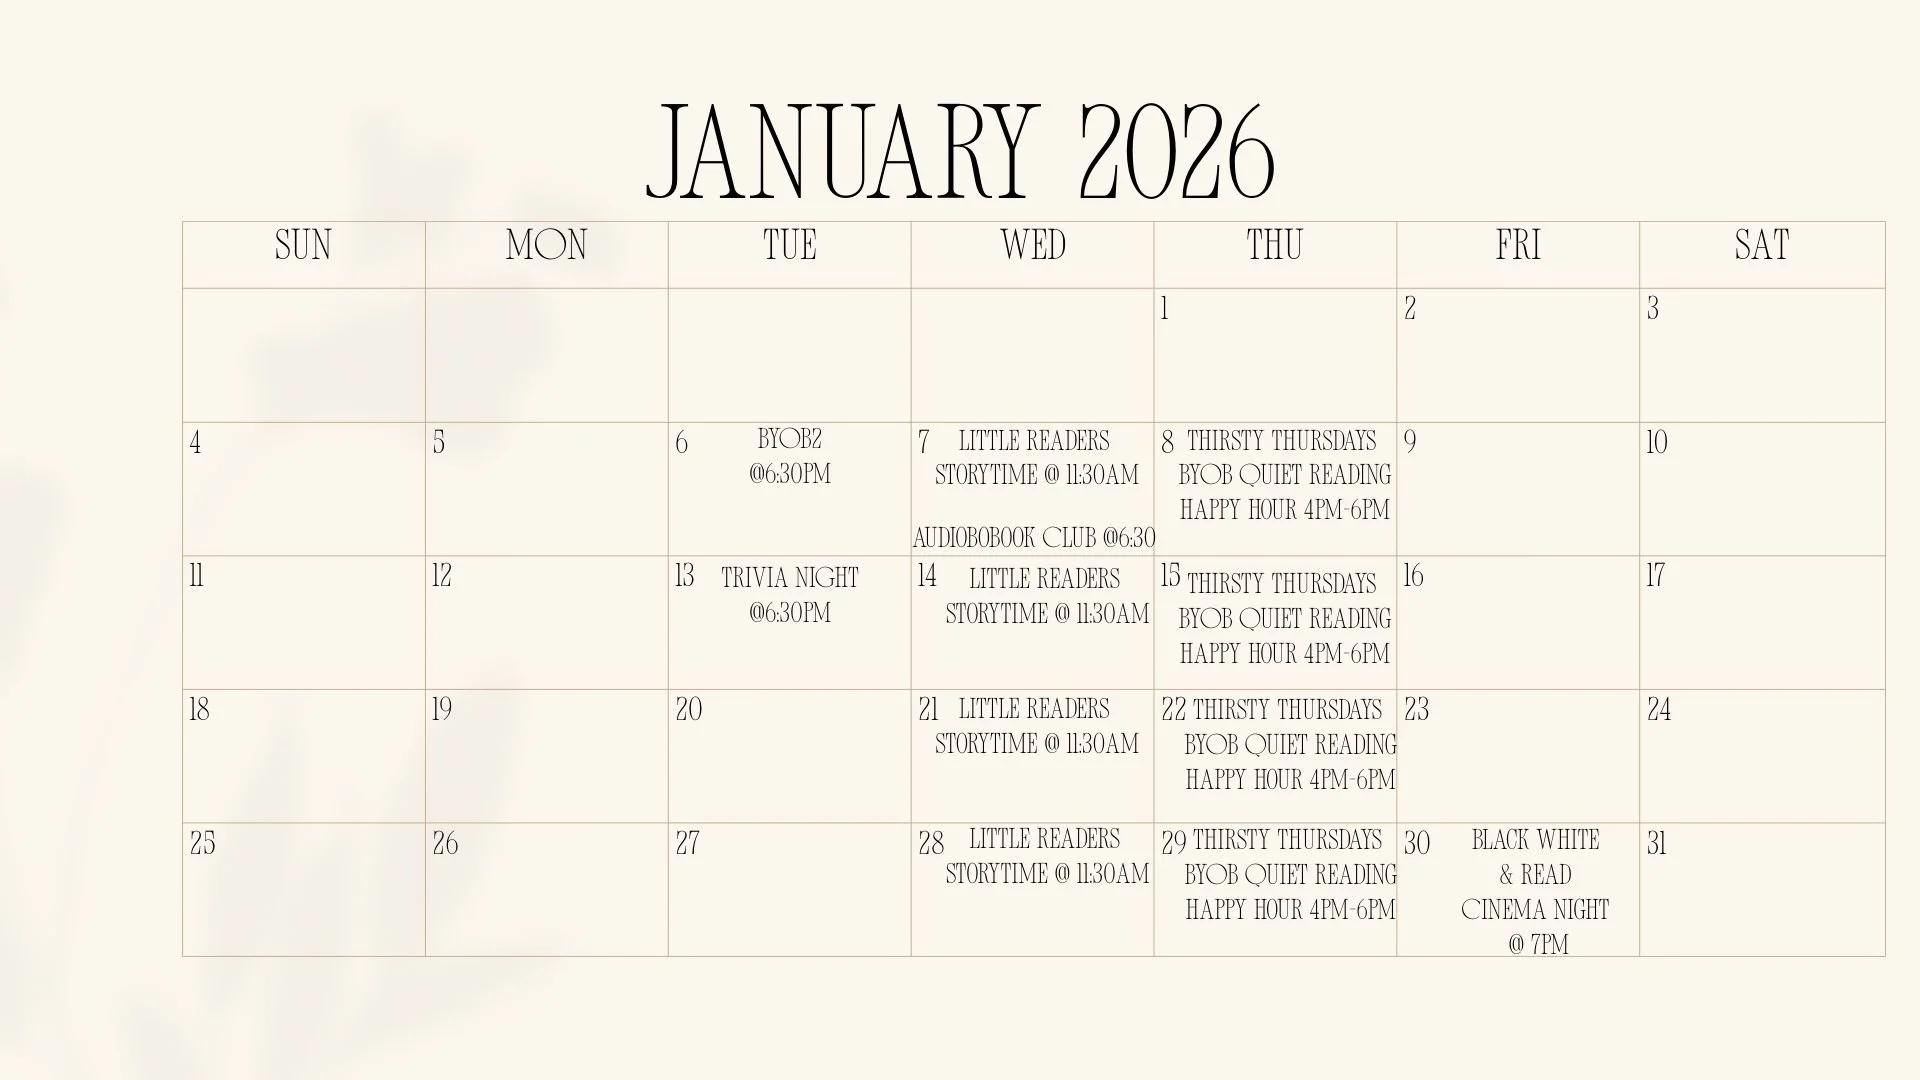 JANUARY 2026
SUN MON TUE WED THU FRI SAT
1 2 3
4
5
6 BYOB2
@6:30PM
7 LITTLE READERS
STORYTIME @ 11:30AM
AUDIOBOBOOK CLUB @6:30
8 THIRSTY THURSDAYS
BYOB QUIET READING
HAPPY HOUR 4PM-6PM
9
10
11
12
13 TRIVIA NIGHT
@6:30PM
14 LITTLE READERS
STORYTIME @ 11:30AM
15 THIRSTY THURSDAYS
BYOB QUIET READING
HAPPY HOUR 4PM-6PM
16
17
18
19
20
21 LITTLE READERS
STORYTIME @ 11:30AM
22 THIRSTY THURSDAYS
BYOB QUIET READING
HAPPY HOUR 4PM-6PM
23
24
25
26
27
28 LITTLE READERS
STORYTIME @ 11:30AM
29 THIRSTY THURSDAYS
BYOB QUIET READING
HAPPY HOUR 4PM-6PM
30 BLACK WHITE
& READ
CINEMA NIGHT
@ 7PM
31